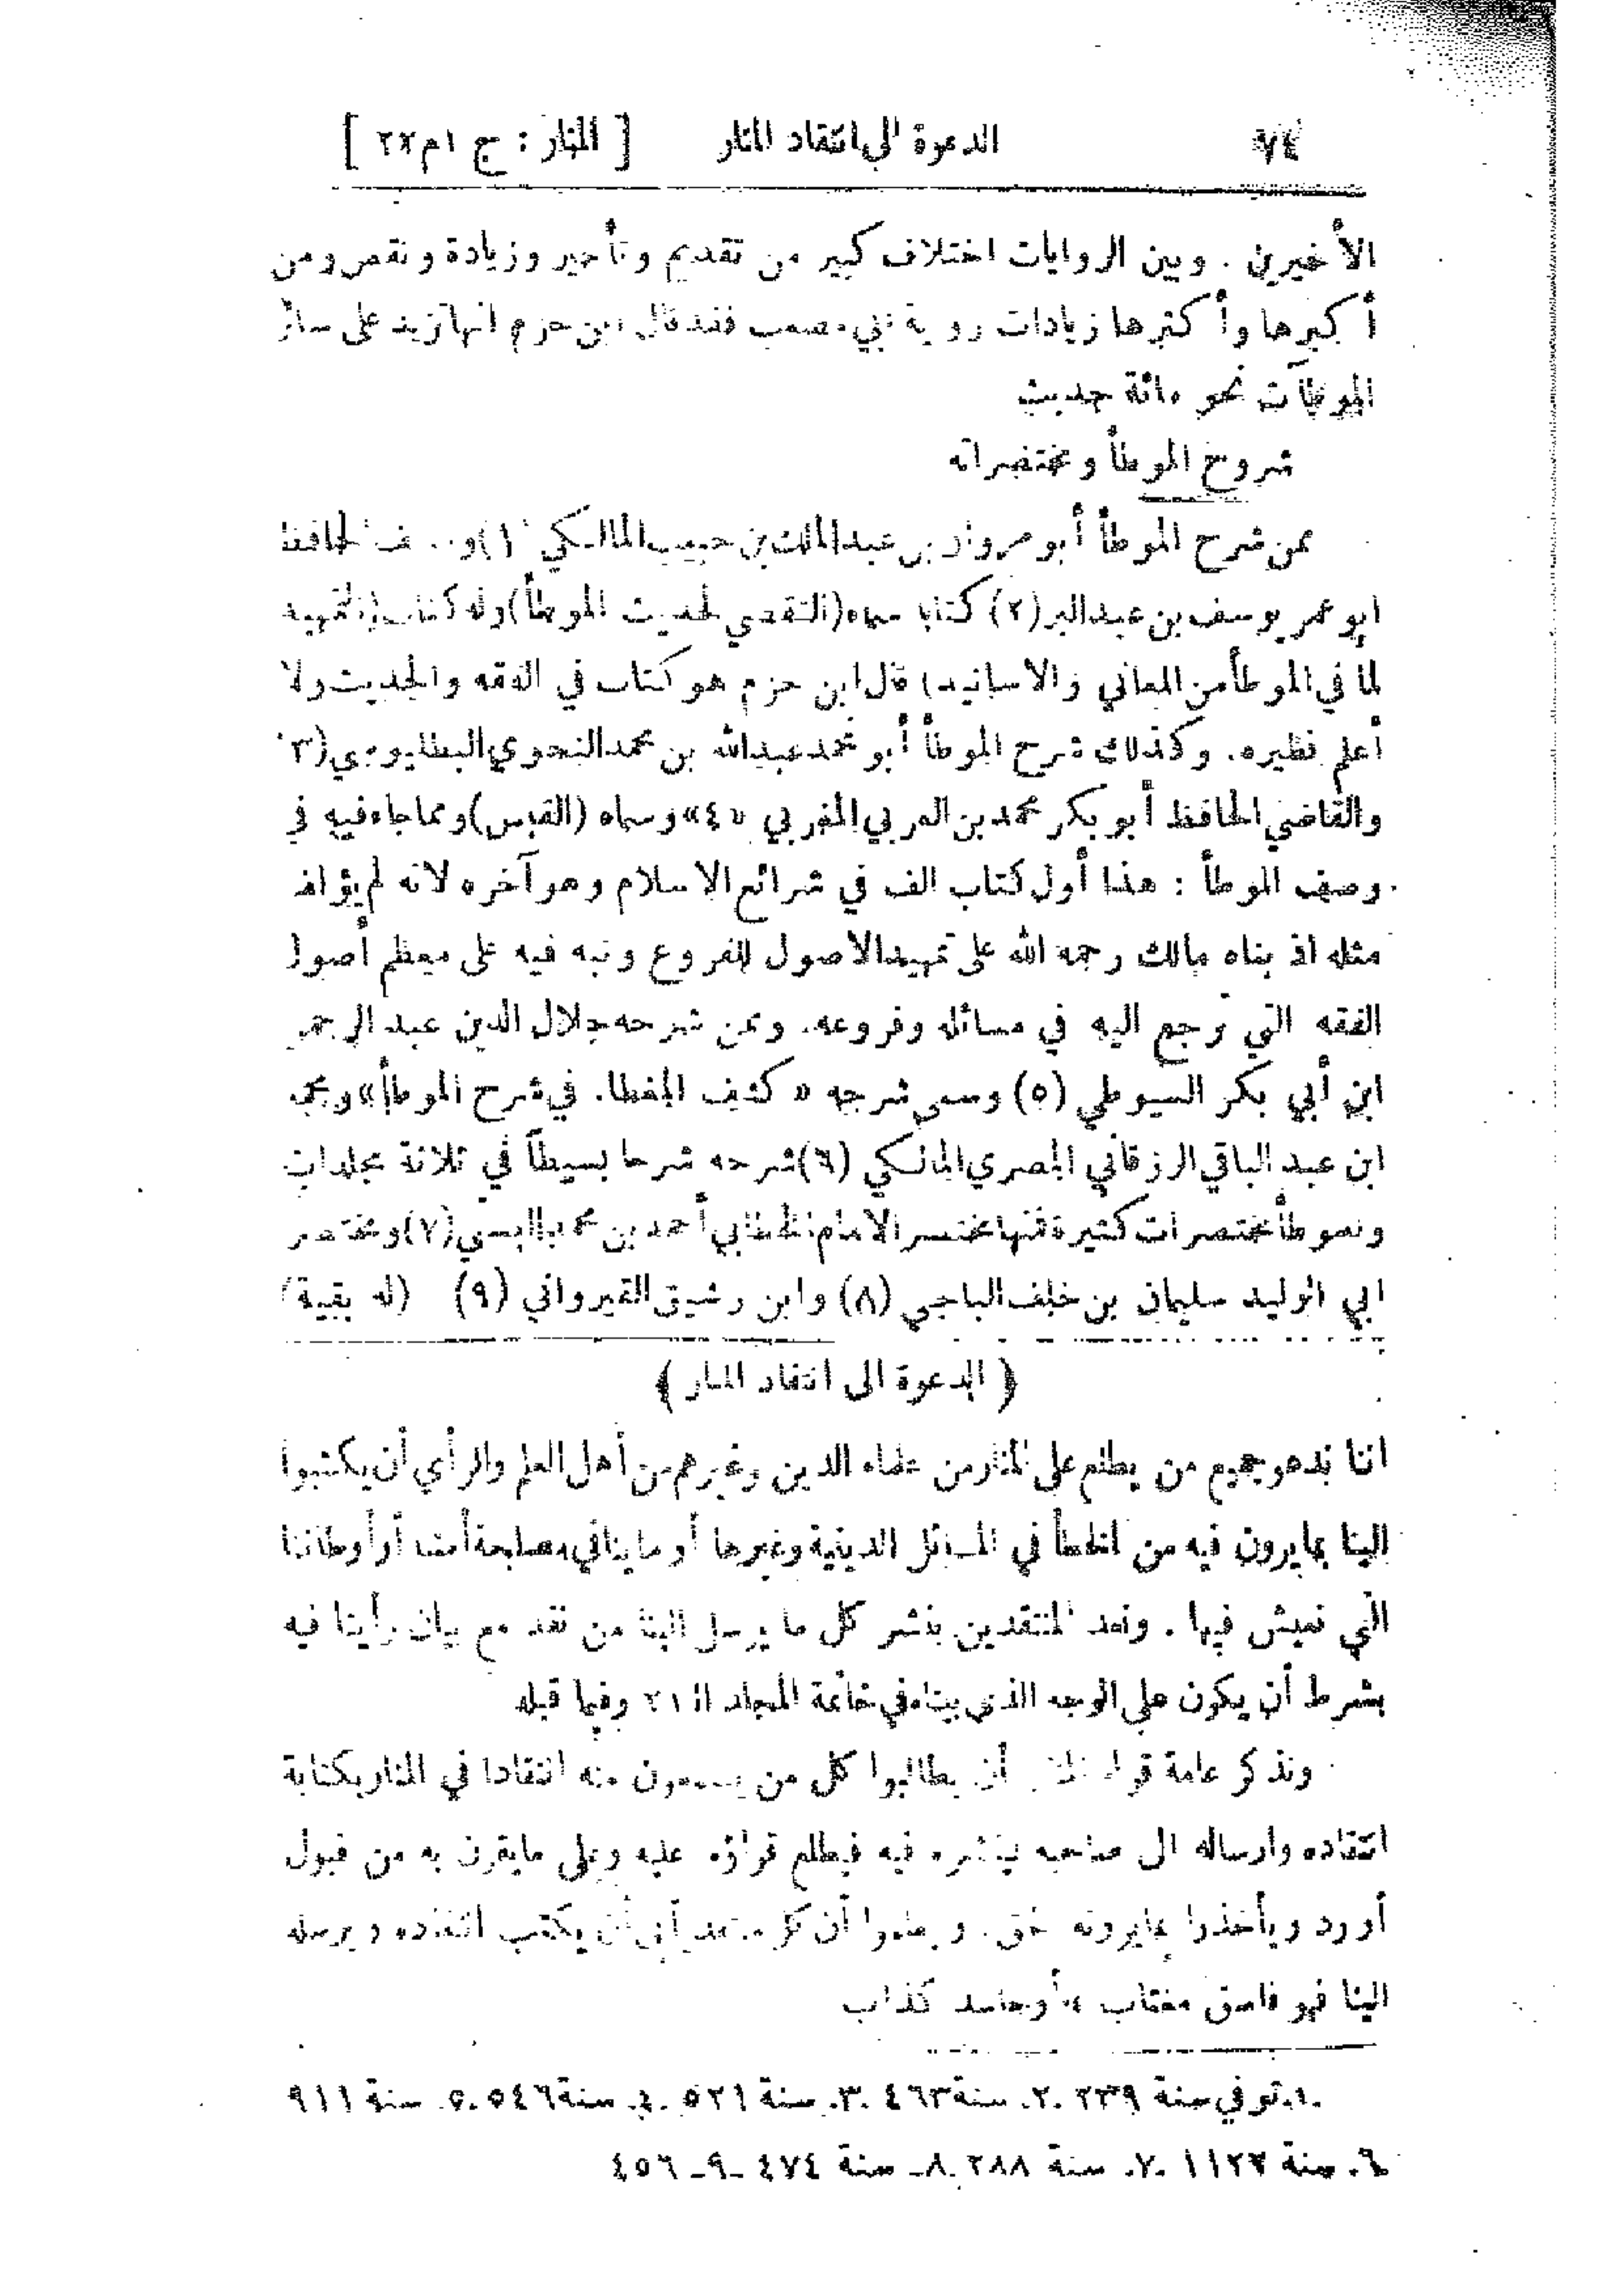 ٧٤ الدعوة الى انتقاد المنار [ المنار : ج ١ م ٢٢ ]
الأخيرين . وبين الروايات اختلاف كبير من تقديم وتأخير وزيادة ونقص ومن
أكبرها وأكثرها زيادات رواية أبي مصعب فقد قال ابن حزم انها تزيد على سائر
الموطآت نحو مائة حديث
شروح الموطأ ومختصراته
ممن شرح الموطأ أبو مروان بن عبد الملك بن حبيب المالكي (١) و الحافظ
ابو عمر يوسف بن عبد البر (٢) كتابا سماه (التقصي لحديث الموطأ) وله كتاب (التمهيد
لما في الموطأ من المعاني والاسانيد) قال ابن حزم هو كتاب في الفقه والحديث ولا
أعلم نظيره . وكذلك شرح الموطأ أبو محمد عبد الله بن محمد النحوي البطليوسي (٣)
والقاضي الحافظ أبو بكر محمد بن العربي المغربي «٤» وسماه (القبس) ومما جاء فيه في
وصف الموطأ : هذا أول كتاب الف في شرائع الاسلام وهو آخره لانه لم يؤلف
مثله اذ بناه مالك رحمه الله على تمهيد الاصول للفروع ونبه فيه على معظم أصول
الفقه التي ترجع اليه في مسائله وفروعه . وممن شرحه جلال الدين عبد الرحمن
ابن أبي بكر السيوطي (٥) وسمى شرحه « كشف المغطا . في شرح الموطأ » ومحمد
ابن عبد الباقي الزرقاني المصري المالكي (٦) شرحه شرحا بسيطاً في ثلاثة مجلدات
وللموطأ مختصرات كثيرة فمنها مختصر الامام الخطابي أحمد بن محمد البستي (٧) ومختصر
ابي الوليد سليمان بن خلف الباجي (٨) وابن رشيق القيرواني (٩) (له بقية)
( الدعوة الى انتقاد المنار )
اننا ندعو جميع من يطلع على المنار من علماء الدين وغيرهم من أهل العلم والرأي أن يكتبوا
الينا بما يرون فيه من الخطأ في المسائل الدينية وغيرها أو ما ينافي مصلحة أمتنا أو أوطاننا
التي نعيش فيها . ونعد المنتقدين بنشر كل ما يرسل الينا من نقد مع بيان رأينا فيه
بشرط أن يكون على الوجه الذي بيناه في خاتمة المجلد الـ ٢١ وفيما قبله
ونذكر عامة قراء المنار أن يطالبوا كل من يسمعون منه انتقادا في المنار بكتابة
انتقاده وارساله الى صاحبه لينشره فيه فيطلع قراؤه عليه وعلى ما يقرن به من قبول
أو رد ويأخذوا بما يرونه الحق . و يعلموا أن كل منتقد أبى أن يكتب انتقاده ويرسله
الينا فهو فاسق مغتاب ، أو حاسد كذاب
١. توفي سنة ٢٣٩ .٢. سنة ٤٦٣ .٣. سنة ٥٢١ .٤. سنة ٥٤٦ .٥. سنة ٩١١
٦. سنة ١١٢٢ .٧. سنة ٢٨٨ .٨. سنة ٤٧٤ ـ٩ـ ٤٥٦